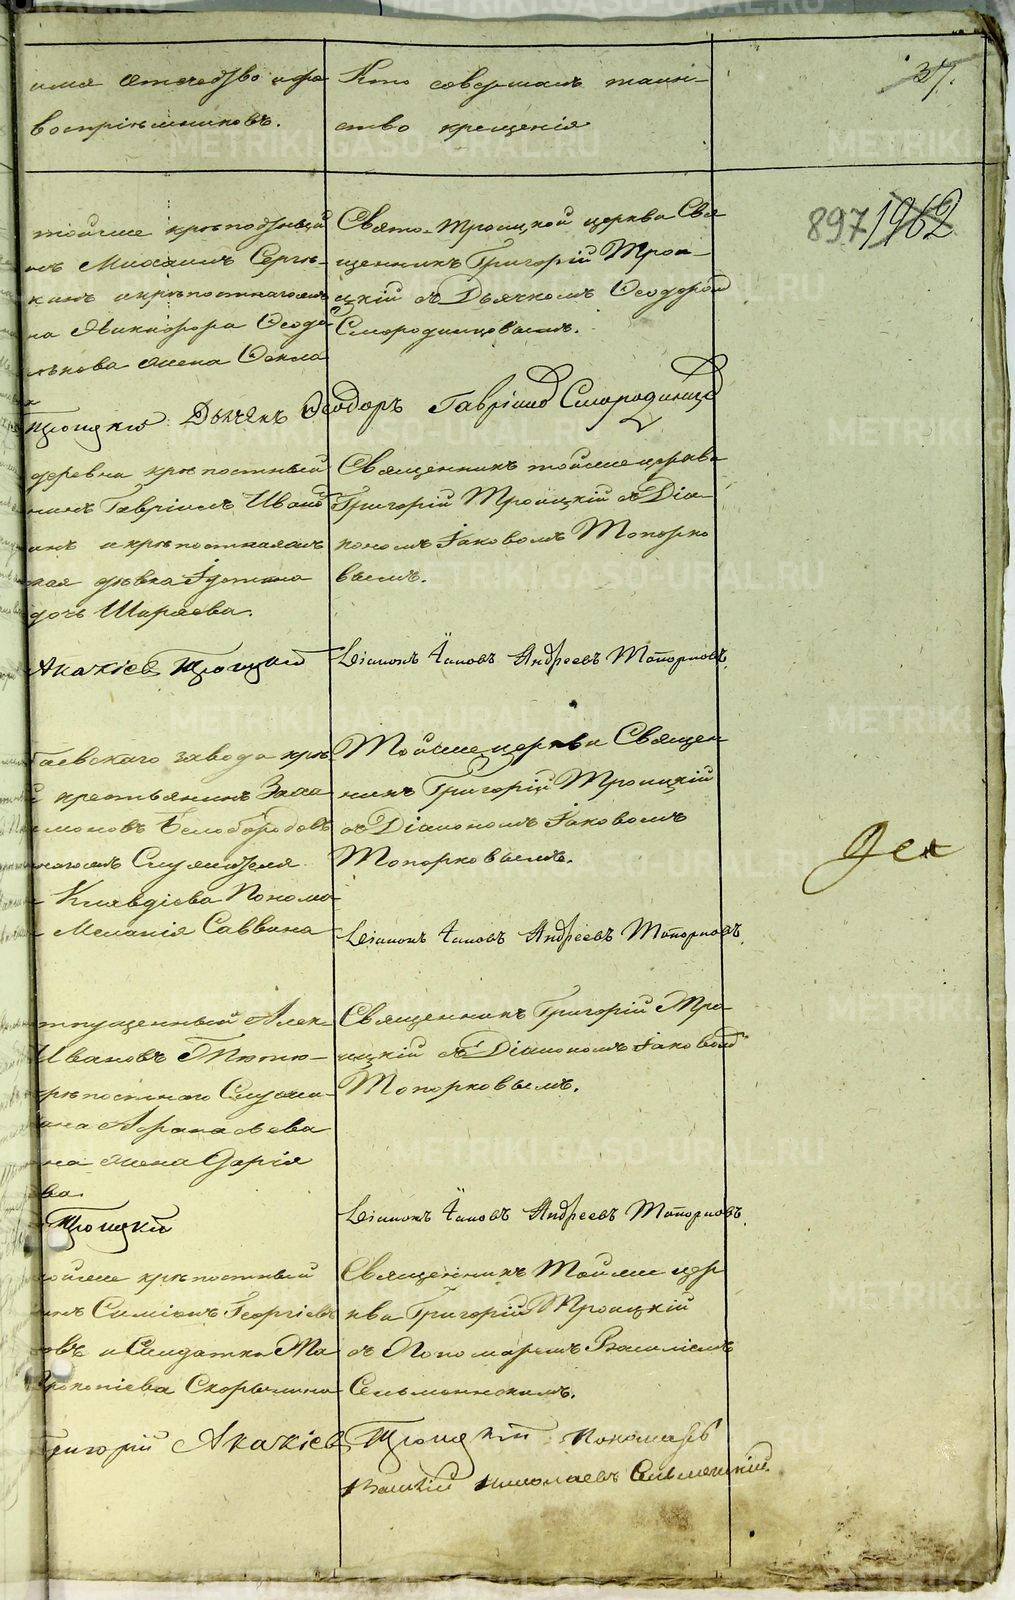 имя отечество и фа
воспріемниковъ.
Кто совершалъ таин-
ство крещенія
37.
897 1962
тойже крѣпостный
нъ Михаилъ Сергѣ-
кинъ и крѣпостнаго
на Никифора Ѳеодо
жена Ѳекла
Свято-Троицкой церкви Свя
щенникъ Григорій Трои-
цкій съ Дьячкомъ Ѳеодоромъ
Смородинцовымъ.
Троицкій Дьячекъ Ѳеодоръ Гавріиловъ Смородинцовъ
деревни крѣпостный
нинъ Гавріилъ Ивановъ
инъ и крѣпостная
кая дѣвка
дочь Ширяева.
Священникъ тойже церкви
Григорій Троицкій съ Діа-
кономъ Іаковомъ Топорко
вымъ.
Акакіевъ Троицкій
Діаконъ Іаковъ Андреевъ Топорковъ.
таевскаго завода крѣ
й крестьянинъ
моновъ Белобородовъ
Служителя
Клавдіева Пономо
Меланія Саввина
Тойже церкви Священ
никъ Григорій Троицкій
съ Діакономъ Іаковомъ
Топорковымъ.
Діаконъ Іаковъ Андреевъ Топорковъ.
тпущенный Алек
Ивановъ Тютю-
крѣпостнаго Служи-
на жена Дарія
ва.
Священникъ Григорій Тро-
ицкій съ Діакономъ Іаковомъ
Топорковымъ.
Троицкій
Діаконъ Іаковъ Андреевъ Топорковъ.
тойже крѣпостный
инъ Симіонъ Георгіевъ
овъ и Солдатка Ма
Прокопіева Скорынина
Священникъ Тойже цер
кви Григорій Троицкій
съ Пономаремъ Василіемъ
Сельменскимъ.
Григорій Акакіевъ Троицкій Пономарь
Василій Николаевъ Сельменскій.
METRIKI.GASO-URAL.RU